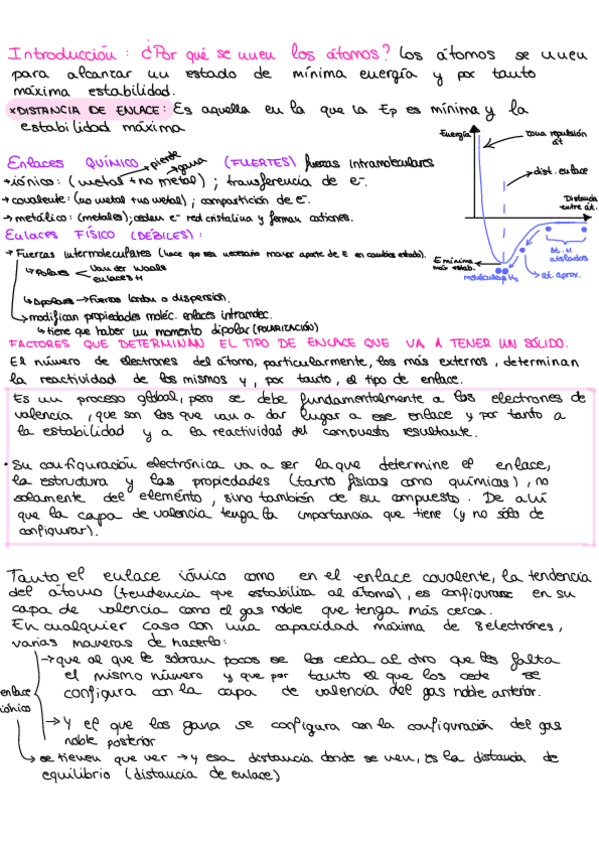 Introducción: ¿Por qué se unen los átomos? Los átomos se unen
para alcanzar un estado de mínima energía y por tanto
máxima estabilidad.
*DISTANCIA DE ENLACE: Es aquella en la que la Ep es mínima y la
estabilidad máxima
Energía
zona repulsión
át
dist. enlace
Distancia
entre át.
E mínima
más estab.
molécula H₂
át. H
aislados
at. aprox.
Enlaces QUÍMICO (FUERTES) fuerzas intramoleculares
pierde
gana
→iónico: (metal + no metal); transferencia de e-.
→covalente: (no metal + no metal); compartición de e-.
→metálico: (metales); ceden e- red cristalina y forman cationes.
Enlaces FÍSICO (DÉBILES):
→Fuerzas Intermoleculares (hace que sea necesario mayor aporte de E en cambios estado).
↳Polares
Van der Waals
enlaces H
↳Apolares→Fuerzas london o dispersión.
→modifican propiedades moléc. enlaces intramolec.
↳tiene que haber un momento dipolar (POLARIZACIÓN)
FACTORES QUE DETERMINAN EL TIPO DE ENLACE QUE VA A TENER UN SÓLIDO.
El número de electrones del átomo, particularmente, los más externos, determinan
la reactividad de los mismos y, por tanto, el tipo de enlace.
Es un proceso global, pero se debe fundamentalmente a los electrones de
valencia, que son los que van a dar lugar a ese enlace y por tanto a
la estabilidad y a la reactividad del compuesto resultante.
• Su configuración electrónica va a ser la que determine el enlace,
la estructura y las propiedades (tanto físicas como químicas), no
solamente del elemento, sino también de su compuesto. De ahí
que la capa de valencia tenga la importancia que tiene (y no sólo de
configurar).
Tanto el enlace iónico como en el enlace covalente, la tendencia
del átomo (tendencia que estabiliza al átomo), es configurarse en su
capa de valencia como el gas noble que tenga más cerca.
En cualquier caso con una capacidad máxima de 8 electrones,
varias maneras de hacerlo:
enlace
iónico
→que al que le sobran pocos se los ceda al otro que les falta
el mismo número y que por tanto el que los cede se
configura con la capa de valencia del gas noble anterior.
→Y el que los gana se configura con la configuración del gas
noble posterior
→se tienen que ver → y esa distancia donde se ven, es la distancia de
equilibrio (distancia de enlace)